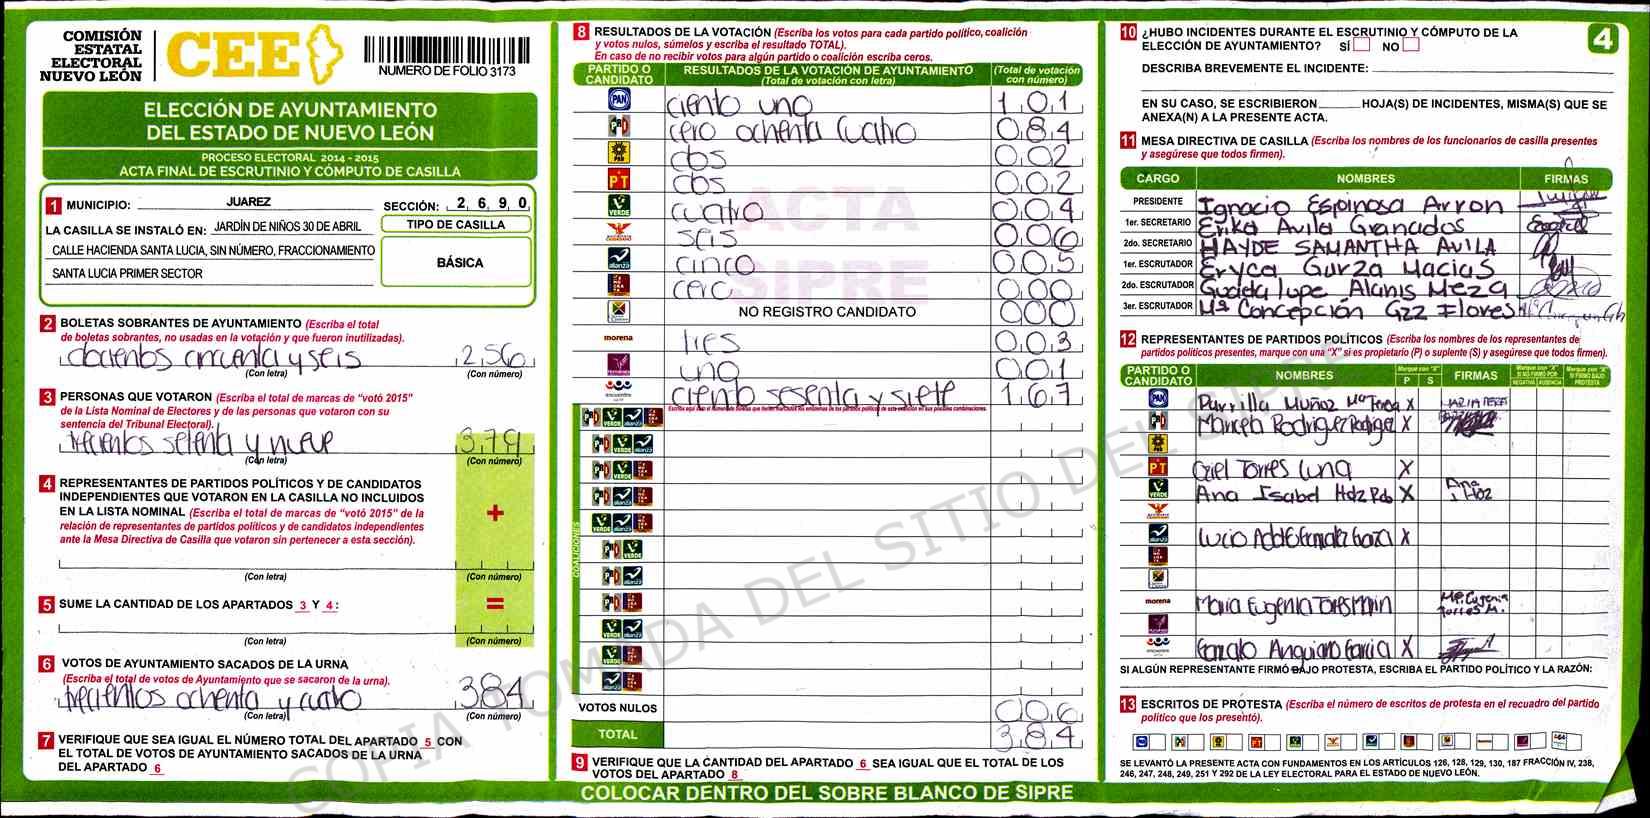 COMISIÓN
ESTATAL
ELECTORAL
NUEVO LEÓN
CEE
NUMERO DE FOLIO 3173
ELECCIÓN DE AYUNTAMIENTO
DEL ESTADO DE NUEVO LEÓN
PROCESO ELECTORAL 2014 - 2015
ACTA FINAL DE ESCRUTINIO Y CÓMPUTO DE CASILLA
1 MUNICIPIO: JUAREZ SECCIÓN: 2 6 9 0
LA CASILLA SE INSTALÓ EN: JARDÍN DE NIÑOS 30 DE ABRIL
CALLE HACIENDA SANTA LUCIA, SIN NÚMERO, FRACCIONAMIENTO
SANTA LUCIA PRIMER SECTOR
TIPO DE CASILLA
BÁSICA
2 BOLETAS SOBRANTES DE AYUNTAMIENTO (Escriba el total
de boletas sobrantes, no usadas en la votación y que fueron inutilizadas).
docientos cincuenta y seis 256
(Con letra) (Con número)
3 PERSONAS QUE VOTARON (Escriba el total de marcas de "votó 2015"
de la Lista Nominal de Electores y de las personas que votaron con su
sentencia del Tribunal Electoral).
trecientos setenta y nueve 379
(Con letra) (Con número)
4 REPRESENTANTES DE PARTIDOS POLÍTICOS Y DE CANDIDATOS
INDEPENDIENTES QUE VOTARON EN LA CASILLA NO INCLUIDOS
EN LA LISTA NOMINAL (Escriba el total de marcas de "votó 2015" de la
relación de representantes de partidos políticos y de candidatos independientes
ante la Mesa Directiva de Casilla que votaron sin pertenecer a esta sección).
+
(Con letra) (Con número)
5 SUME LA CANTIDAD DE LOS APARTADOS 3 Y 4:
=
(Con letra) (Con número)
6 VOTOS DE AYUNTAMIENTO SACADOS DE LA URNA
(Escriba el total de votos de Ayuntamiento que se sacaron de la urna).
trecientos ochenta y cuatro 384
(Con letra) (Con número)
7 VERIFIQUE QUE SEA IGUAL EL NÚMERO TOTAL DEL APARTADO 5 CON
EL TOTAL DE VOTOS DE AYUNTAMIENTO SACADOS DE LA URNA
DEL APARTADO 6
8 RESULTADOS DE LA VOTACIÓN (Escriba los votos para cada partido político, coalición
y votos nulos, súmelos y escriba el resultado TOTAL).
En caso de no recibir votos para algún partido o coalición escriba ceros.
PARTIDO O CANDIDATO
RESULTADOS DE LA VOTACIÓN DE AYUNTAMIENTO
(Total de votación con letra)
(Total de votación con número)
PAN ciento uno 101
PRD cero ochenta cuatro 084
dos 002
PT dos 002
VERDE cuatro 004
seis 006
alianza cinco 005
cero 000
NO REGISTRO CANDIDATO 000
morena tres 003
uno 001
encuentro ciento sesenta y siete 167
COALICIONES
VOTOS NULOS 006
TOTAL 384
ACTA
SIPRE
9 VERIFIQUE QUE LA CANTIDAD DEL APARTADO 6 SEA IGUAL QUE EL TOTAL DE LOS
VOTOS DEL APARTADO 8
COLOCAR DENTRO DEL SOBRE BLANCO DE SIPRE
4
10 ¿HUBO INCIDENTES DURANTE EL ESCRUTINIO Y CÓMPUTO DE LA
ELECCIÓN DE AYUNTAMIENTO? SÍ NO
DESCRIBA BREVEMENTE EL INCIDENTE:
EN SU CASO, SE ESCRIBIERON HOJA(S) DE INCIDENTES, MISMA(S) QUE SE
ANEXA(N) A LA PRESENTE ACTA.
11 MESA DIRECTIVA DE CASILLA (Escriba los nombres de los funcionarios de casilla presentes
y asegúrese que todos firmen).
CARGO NOMBRES FIRMAS
PRESIDENTE Ignacio Espinosa Arron
1er. SECRETARIO Erika Avila Granados
2do. SECRETARIO HAYDE SAMANTHA AVILA
1er. ESCRUTADOR Eryca Gurza Macias
2do. ESCRUTADOR Guadalupe Alanis Meza
3er. ESCRUTADOR Mª Concepción Gzz Flores
12 REPRESENTANTES DE PARTIDOS POLÍTICOS (Escriba los nombres de los representantes de
partidos políticos presentes, marque con una "X" si es propietario (P) o suplente (S) y asegúrese que todos firmen).
PARTIDO O CANDIDATO
NOMBRES
Marque con "X"
P S
FIRMAS
Marque con "X" SI NO FIRMÓ POR NEGATIVA AUSENCIA
Marque con "X" SI FIRMÓ BAJO PROTESTA
PAN Parrilla Muñoz Mª Teresa X
Marcela Rodriguez Rodrigez X
PT Oziel Torres Luna X
VERDE Ana Isabel Hdz Rdo X Ana Hdz
Lucio X
morena Maria Eugenia Torres Marin Mª. Eugenia
Torres M.
Gonzalo Anguiano Garcia X
SI ALGÚN REPRESENTANTE FIRMÓ BAJO PROTESTA, ESCRIBA EL PARTIDO POLÍTICO Y LA RAZÓN:
13 ESCRITOS DE PROTESTA (Escriba el número de escritos de protesta en el recuadro del partido
político que los presentó).
SE LEVANTÓ LA PRESENTE ACTA CON FUNDAMENTOS EN LOS ARTÍCULOS 126, 128, 129, 130, 187 FRACCIÓN IV, 238,
246, 247, 248, 249, 251 Y 292 DE LA LEY ELECTORAL PARA EL ESTADO DE NUEVO LEÓN.
COPIA TOMADA DEL SITIO DEL SIPRE